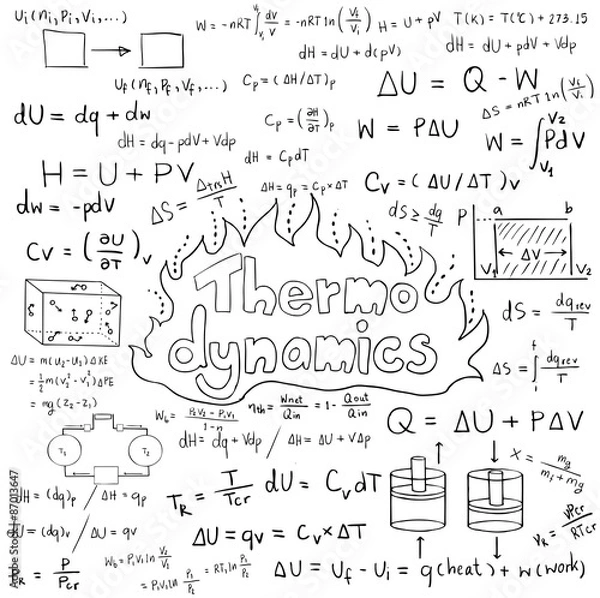 Ui(ni,Pi,Vi,...)
W = -nRT∫V₁^Vf dV/V = -nRT ln(Vf/Vi)
H = U + PV
T(K) = T(°C) + 273.15
dH = dU + d(pV)
dH = dU + pdV + Vdp
Uf(nf,Pf,Vf,...)
Cp = (ΔH/ΔT)p
ΔU = Q - W
ΔS = nRT ln(Vf/Vi)
dU = dq + dw
Cp = (∂H/∂T)p
W = PΔU
W = ∫V₁^V₂ PdV
dH = dq - pdV + Vdp
dH = CpdT
H = U + PV
ΔS = ΔtrsH/T
ΔH = qp = Cp×ΔT
Cv = (ΔU/ΔT)v
dw = -pdV
dS ≥ dq/T
P
a
b
ΔV
V₁
V₂
Cv = (∂U/∂T)v
Thermo
dynamics
dS = dqrev/T
ΔU = m(u₂-u₁)ΔKE
= ½m(v₂²-v₁²)ΔPE
= mg(z₂-z₁)
ΔS = ∫i^f dqrev/T
Wb = P₂V₂ - P₁V₁/1-n
ηth = Wnet/Qin = 1 - Qout/Qin
Q = ΔU + PΔV
T₁
T₂
dH = dq + Vdp / ΔH = ΔU + VΔp
X = mg/mf+mg
dH = (dq)p / ΔH = qp
TR = T/Tcr
dU = CvdT
= (dq)v / ΔU = qv
ΔU = qv = Cv×ΔT
VR = VPcr/RTcr
Wb = P₁V₁ ln V₂/V₁
= P₁V₁ ln P₁/P₂ = RT₁ ln P₁/P₂
R = P/Pcr
ΔU = Uf - Ui = q(heat) + w(work)
Adobe Stock | #87013647